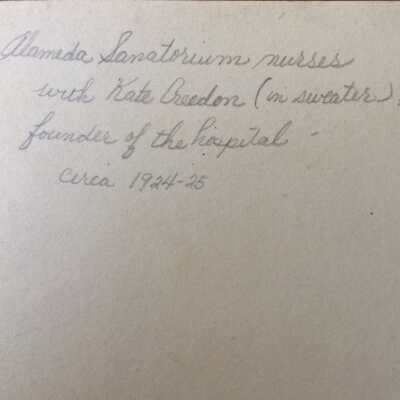 Alameda Sanatorium nurses
with Kate Creedon (in sweater),
founder of the hospital -
circa 1924-25